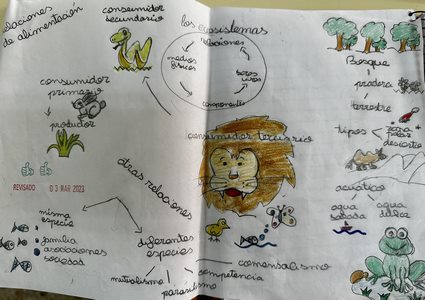 relaciones
de alimentación
consumidor
secundario
consumidor
primario
productor
REVISADO 03 MAR 2023
otras relaciones
misma
especie
familia
asociaciones
sociedad
diferentes
especies
mutualismo
parasitismo
competencia
comensalismo
los ecosistemas
relaciones
medios
físicos
seres
vivos
componentes
consumidor terciario
Bosque
pradera
terrestre
tipos
zona
polar
desierto
acuático
agua
salada
agua
dulce